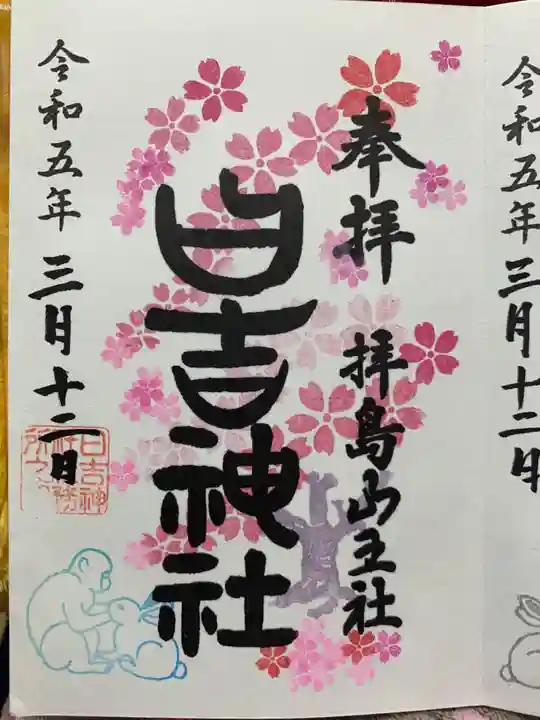 令和五年三月十二日
奉拝
拝島山王社
日吉神社
令和五年三月十二日
日吉神
社務
所